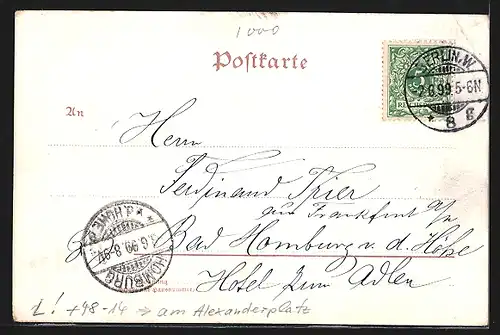 1000
Postkarte
BERLIN.W.
5
7.6.99.5-6N
* 8 g
An
Herrn
Ferdinand Trier
aus Frankfurt a/M
Bad Homburg v. d. Höhe
Hotel zum Adler
HOMBURG v. d. HÖHE
8.6.99. 8-9V.
L! +98-14 → am Alexanderplatz